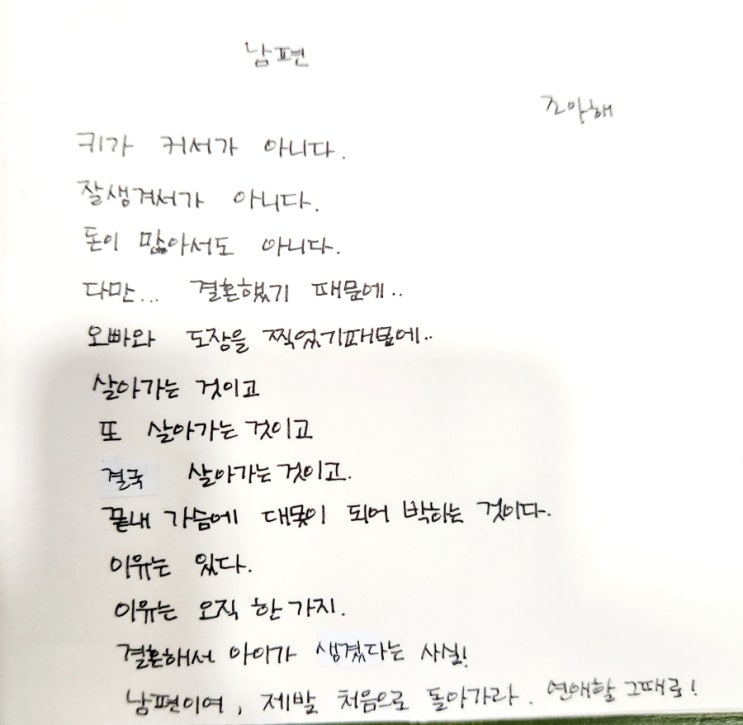 남편
조아해
키가 커서가 아니다.
잘생겨서가 아니다.
돈이 많아서도 아니다.
다만... 결혼했기 때문에..
오빠와 도장을 찍었기때문에..
살아가는 것이고
또 살아가는 것이고
결국 살아가는것이고.
끝내 가슴에 대못이 되어 박히는 것이다.
이유는 있다.
이유는 오직 한 가지.
결혼해서 아이가 생겼다는 사실!
남편이여, 제발 처음으로 돌아가라. 연애할 그때로!